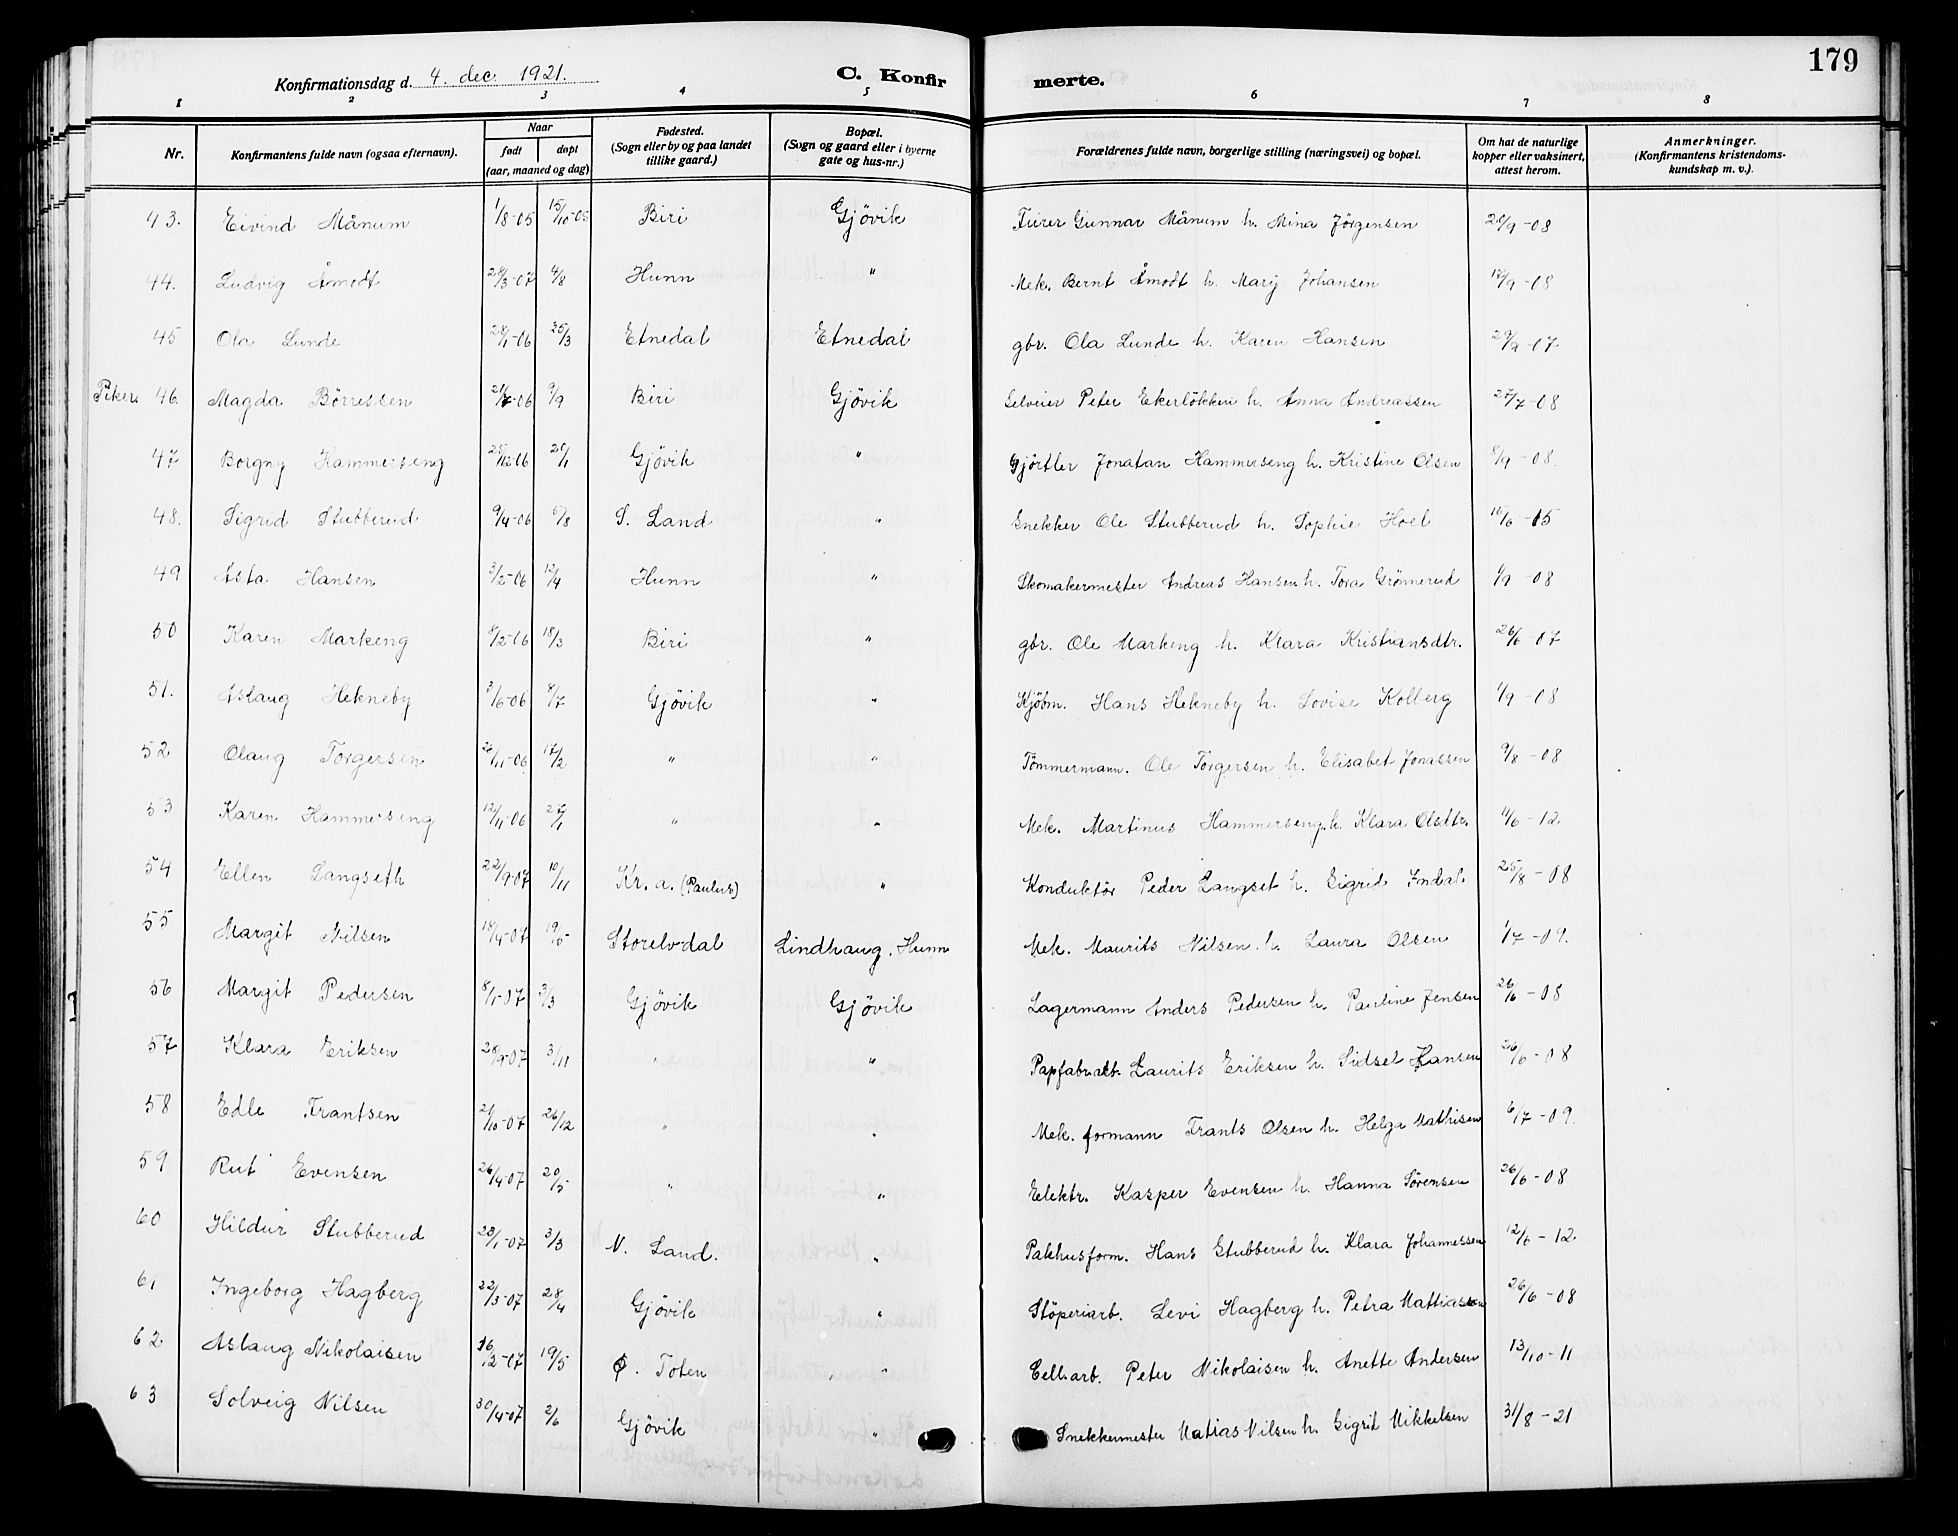 179
Konfirmationsdag d. 4. dec. 1921. C. Konfir merte.
1 2 3 4 5 6 7 8
Nr. Konfirmantens fulde navn (ogsaa efternavn). Naar født døpt (aar, maaned og dag) Fødested. (Sogn eller by og paa landet tillike gaard.) Bopæl. (Sogn og gaard eller i byerne gate og hus-nr.) Forældrenes fulde navn, borgerlige stilling (næringsvei) og bopæl. Om hat de naturlige kopper eller vaksinert, attest herom. Anmerkninger. (Konfirmantens kristendoms-kundskap m. v.).
43. Eivind Månum 1/8-05 15/10-05 Biri Gjövik Fürer Gunnar Månum h. Mina Jörgensen /9-08
44. Ludvig Åmodt /3-07 4/8 Hunn " Mek. Bernt Åmodt h. Mary Johansen 17/9-08
45 Ola Lunde 28/1-06 25/3 Etnedal Etnedal gbr. Ola Lunde h. Karen Hansen 29/9-07.
Piker 46. Magda Börressen -06 9/9 Biri Gjövik Selveier Peter Ekerlökken h. Anna Andreassen 27/7-08
47 Borgny Hammerseng /12-06 20/1 Gjövik " Gjörtler Jonatan Hammerseng h. Kristine Olsen 8/9-08.
48. Sigrid Stubberud 9/4-06 /8 S. Land " Snekker Ole Stubberud h. Sophie Hoel 16/6-15
49 Asta Hansen 3/2-06 12/4 Hunn " Skomakermester Andreas Hansen h. Tora Grönnerud 1/9-08
50 Karen Markeng 8/2-06 18/3 Biri " gbr. Ole Markeng h. Klara Kristiansdtr. 26/6-07
51. Aslaug Hekneby 3/6-06 8/7 Gjövik " Kjöbm. Hans Hekneby h. Lovise Kolberg 1/9-08
52 Olaug Torgersen /11-06 17/2 " " Tömmermann. Ole Torgersen h. Elisabet Jonassen 9/8-08
53 Karen Hammerseng 12/11-06 27/1 " " Mek. Martinus Hammerseng h. Klara Olsdtr. /6-12.
54 Ellen Langseth 22/9-07 10/11 Kr.a. (Paulus) " Konduktör Peder Langset h. Sigrid Indal. 25/8-08
55 Margit Nilsen 18/4-07 19/5 Storelvdal Lindhaug, Hunn Mek. Maurits Nilsen h. Laura Olsen 1/7-09.
56 Margit Pedersen 8/1-07 3/3 Gjövik Gjövik Lagermann Anders Pedersen h. Pauline Jensen 26/6-08
57 Klara Eriksen 28/9-07 3/11 " " Papfabr.arb. Laurits Eriksen h. Sidsel Hansen 26/6-08
58 Edle Frantsen 21/10-07 26/12 " " Mek. formann Frants Olsen h. Helga Mathisen 6/7-09.
59 Rut Evensen 26/4-07 20/5 " " Elektr. Kasper Evensen h. Hanna Sörensen 26/6-08
60 Hildur Stubberud 23/1-07 3/3 N. Land. " Pakhusform. Hans Stubberud h. Klara Johannessen 12/6-12.
61 Ingeborg Hagberg 22/3-07 28/4 Gjövik " Stöperiarb. Levi Hagberg h. Petra Mattiassen 26/6-08
62. Aslaug Nikolaisen 16/2-07 19/5 Ö. Toten " Cell.arb. Peter Nikolaisen h. Anette Andersen 13/10-11
63 Solveig Nilsen 30/4-07 2/6 Gjövik " Snekkermester Matias Nilsen h. Sigrid Mikkelsen 31/8-21